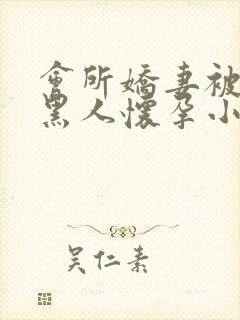 會所嬌妻被
黑人懷孕小
吴仁素